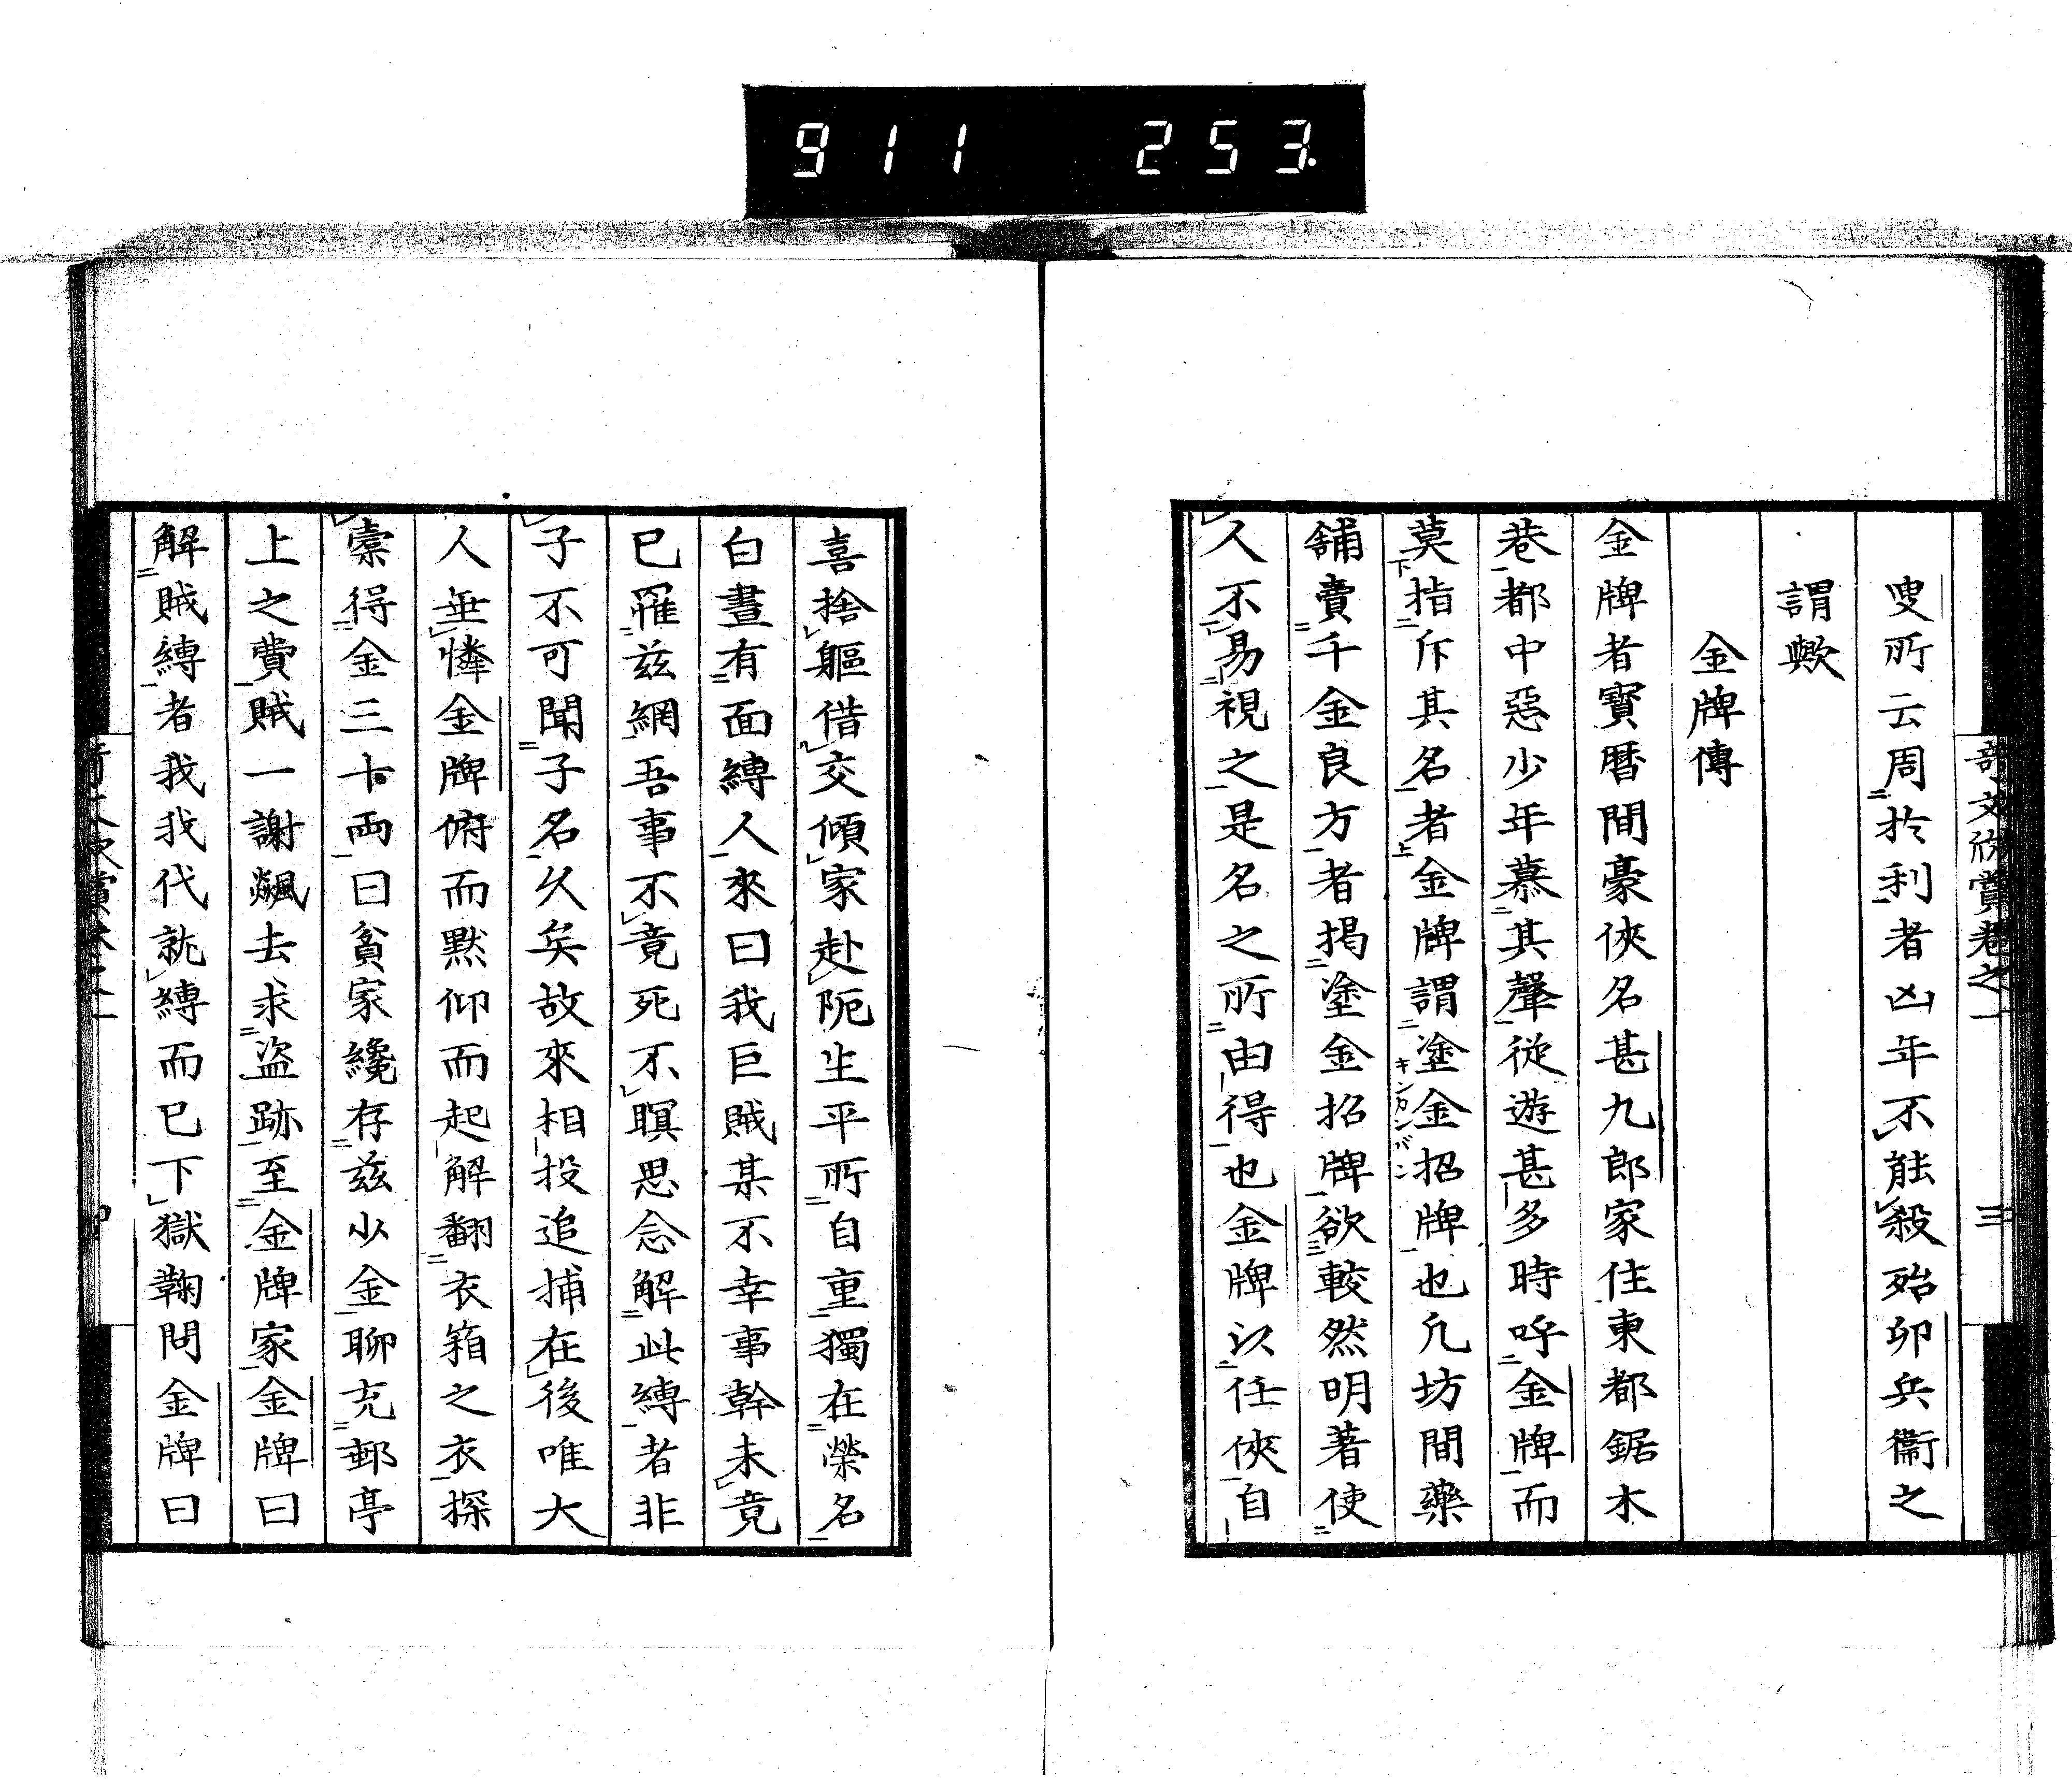 911 253
奇文欣賞卷之一 三
叟所云周於利者凶年不能殺殆卯兵衞之
謂歟
金牌傳
金牌者寳暦間豪俠名甚九郎家住東都鋸木
巷都中惡少年慕其聲從遊甚多時呼金牌而
莫指斥其名者金牌謂塗金招牌也凡坊間藥
キンカンバン
舖賣千金良方者揭塗金招牌欲較然明著使
人不易視之是名之所由得也金牌以任俠自
喜捨軀借交傾家赴阨生平所自重獨在榮名
白晝有面縛人來曰我巨賊某不幸事幹未竟
已罹玆網吾事不竟死不瞑思念解此縛者非
子不可聞子名久矣故來相投追捕在後唯大
人垂憐金牌俯而默仰而起解翻衣箱之衣探
橐得金三十兩曰貧家纔存玆少金聊充郵亭
上之費賊一謝飄去求盜跡至金牌家金牌曰
解賊縛者我我代就縛而已下獄鞠問金牌曰